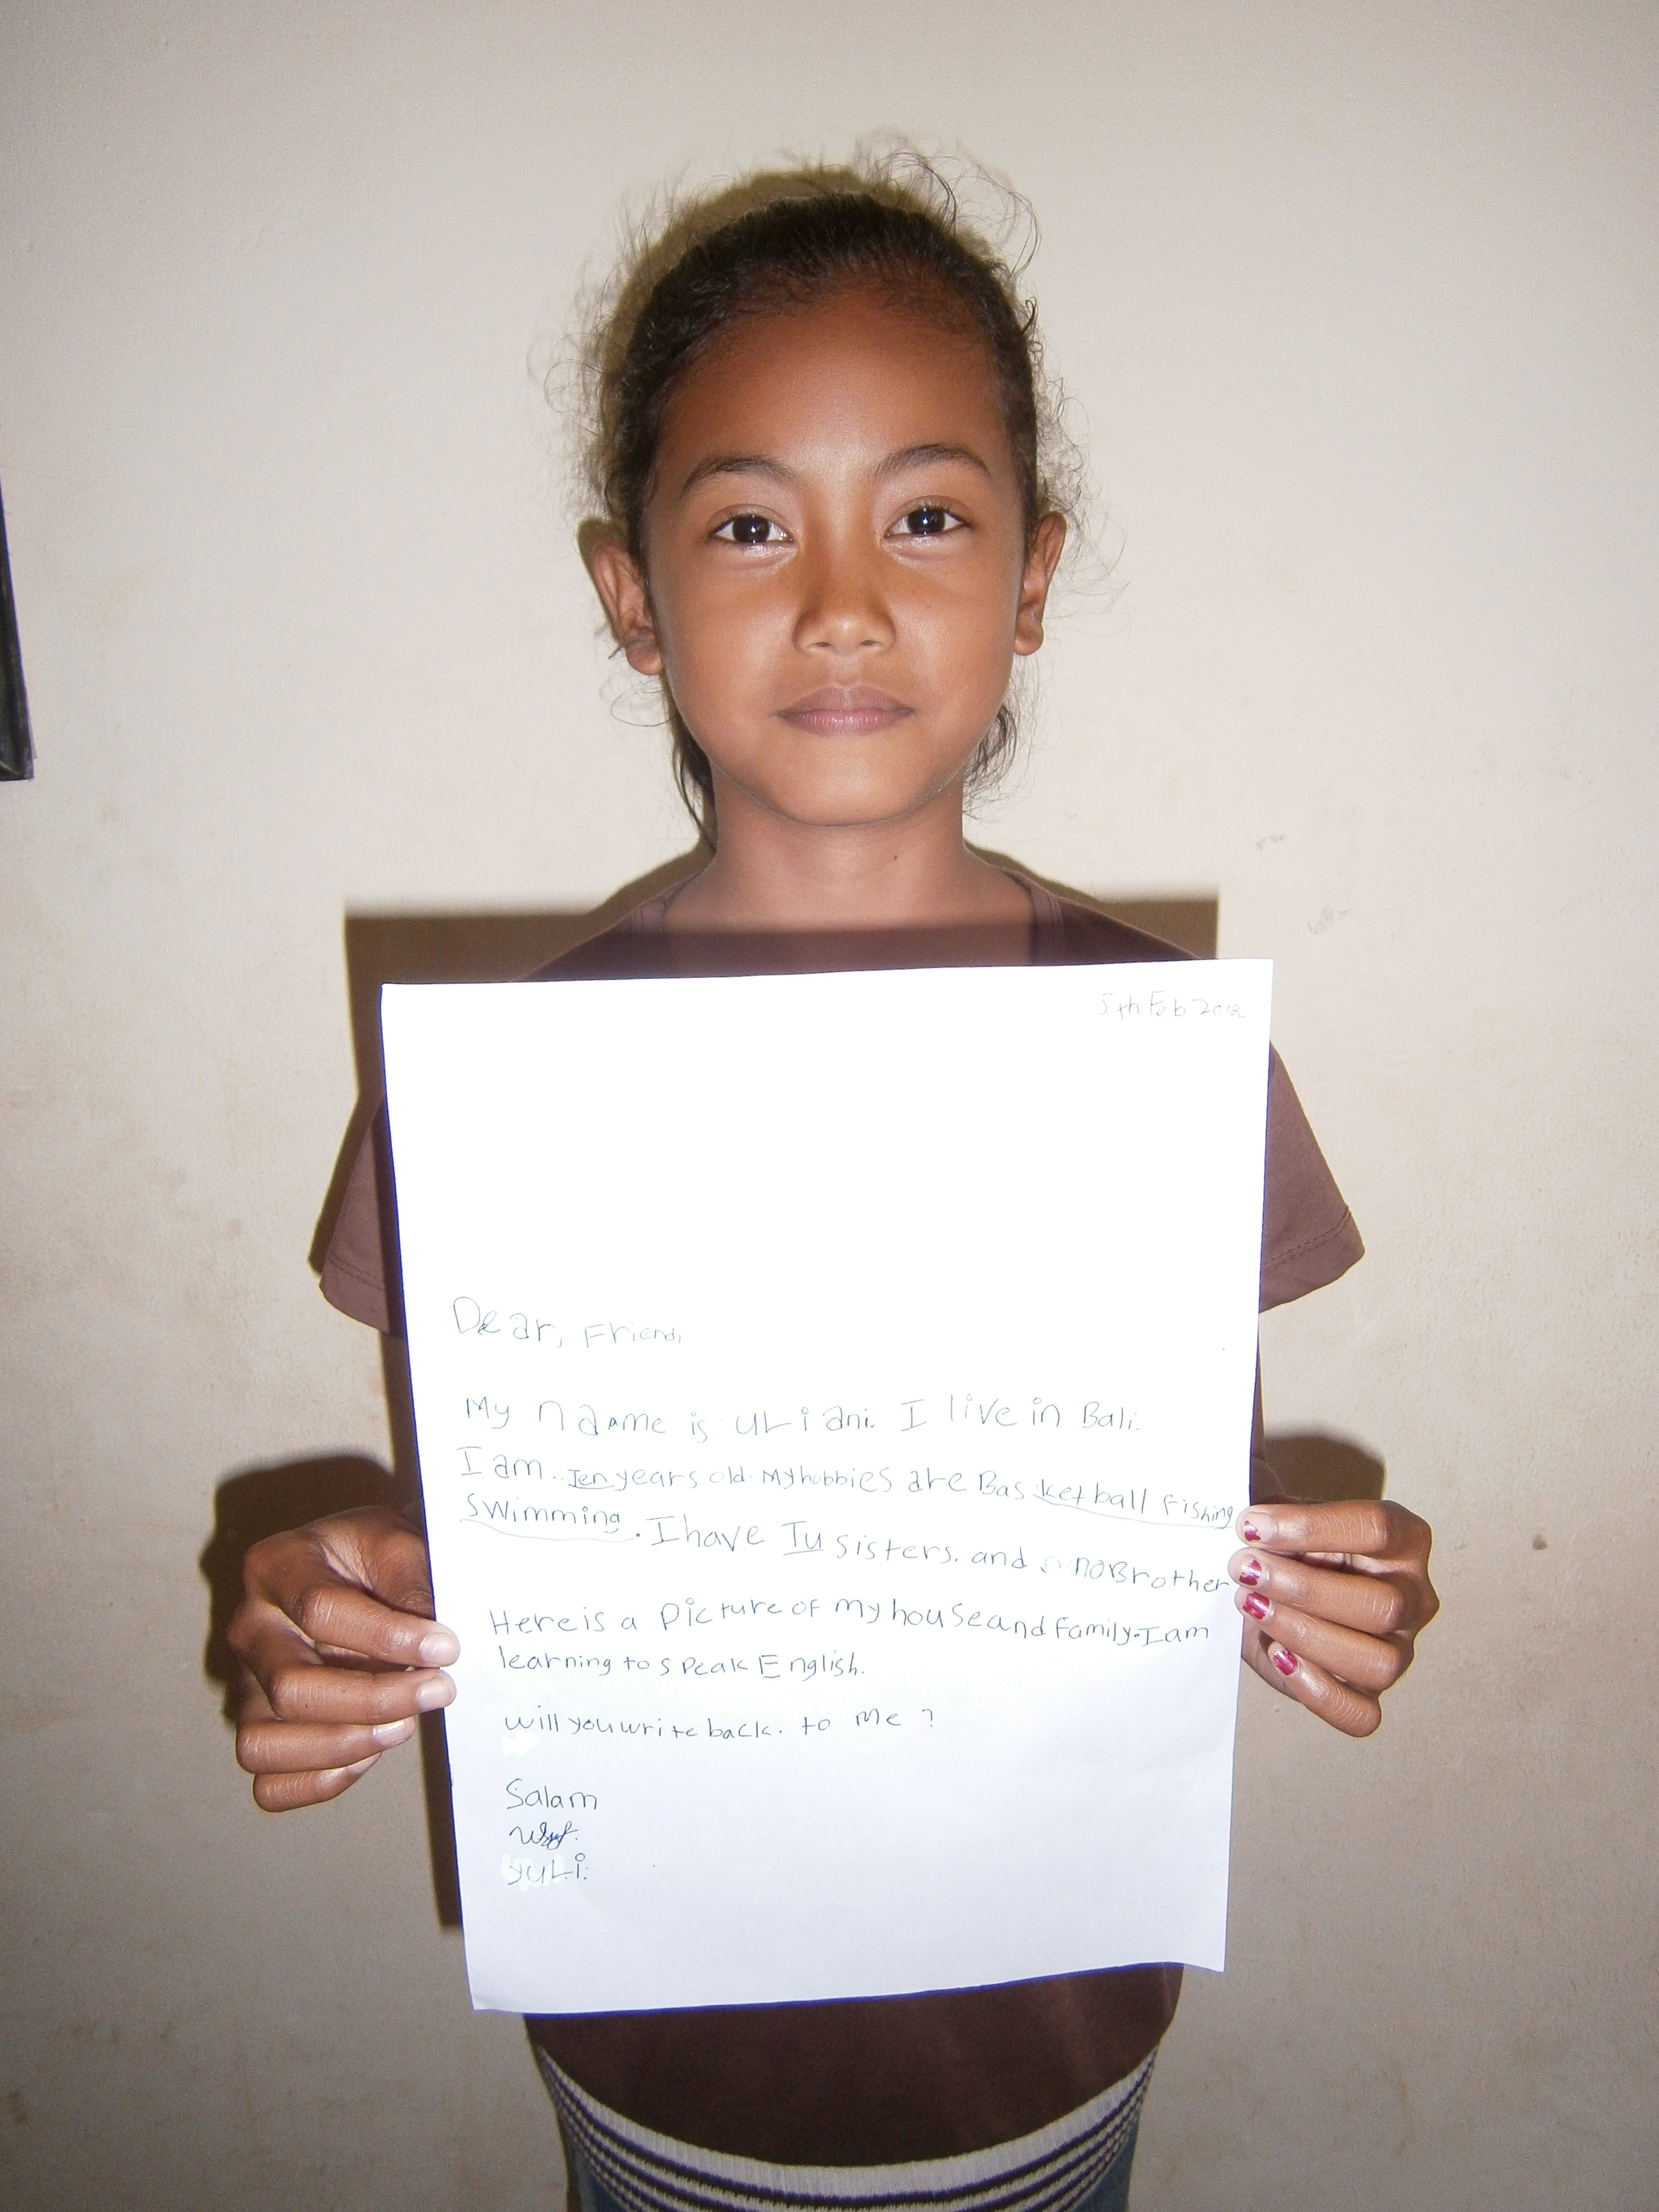 5th Feb 2012
Dear, Friend,
My naame is uLiani. I live in Bali.
I am.. Ten years old. My hobbies are Basketball Fishing
swimming. I have Tu sisters. and no Brother
Here is a picture of my house and family. I am
learning to speak English.
will you write back. to me ?
Salam
yuLi.